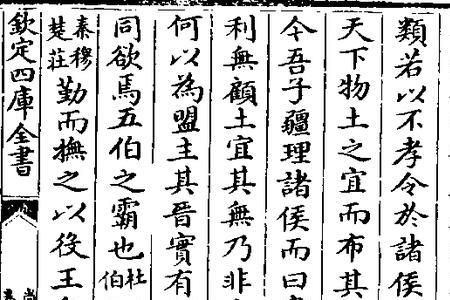 類若以不孝令於諸侯
天下物土之宜而布其
今吾子疆理諸侯而曰
利無顧土宜其無乃非
何以為盟主其晉實有
同欲焉五伯之霸也杜
伯
秦穆
楚莊勤而撫之以役王
欽定四庫全書